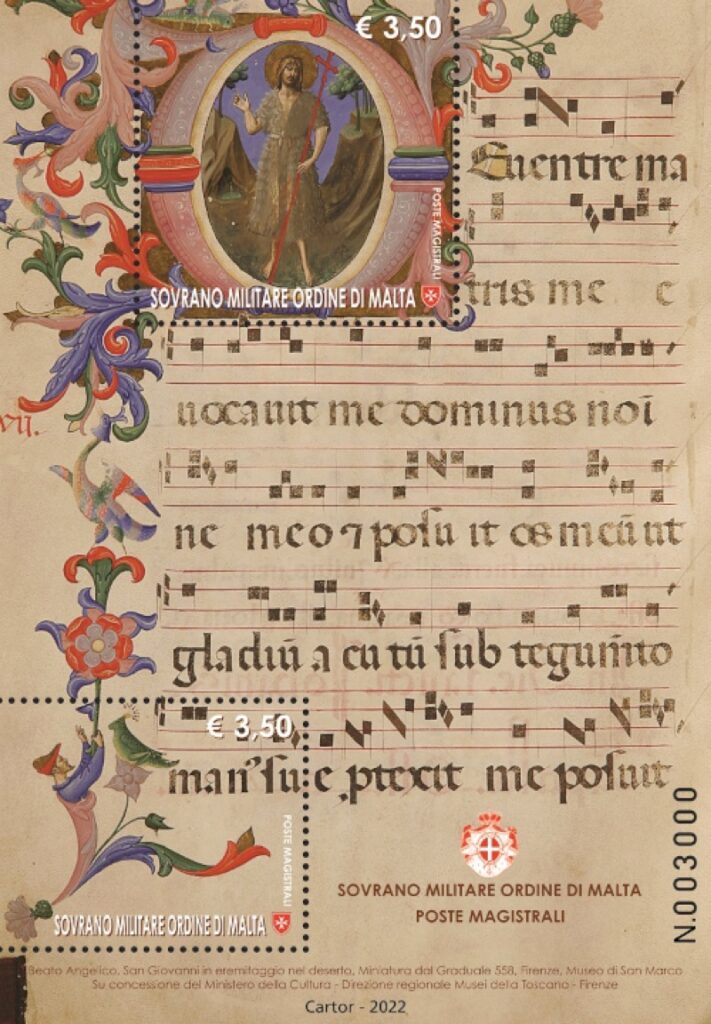 € 3,50
POSTE MAGISTRALI
SOVRANO MILITARE ORDINE DI MALTA
E uentre ma
tris me e
uocauit me dominus noı̄
vii.
ne meo ⁊ posu it os meū ut
gladiū a cu tū sub tegum̄to
man' su e ptexit me posuit
€ 3,50
POSTE MAGISTRALI
SOVRANO MILITARE ORDINE DI MALTA
SOVRANO MILITARE ORDINE DI MALTA
POSTE MAGISTRALI
N.003000
Beato Angelico, San Giovanni in eremitaggio nel deserto, Miniatura dal Graduale 558, Firenze, Museo di San Marco
Su concessione del Ministero della Cultura - Direzione regionale Musei della Toscana - Firenze
Cartor - 2022